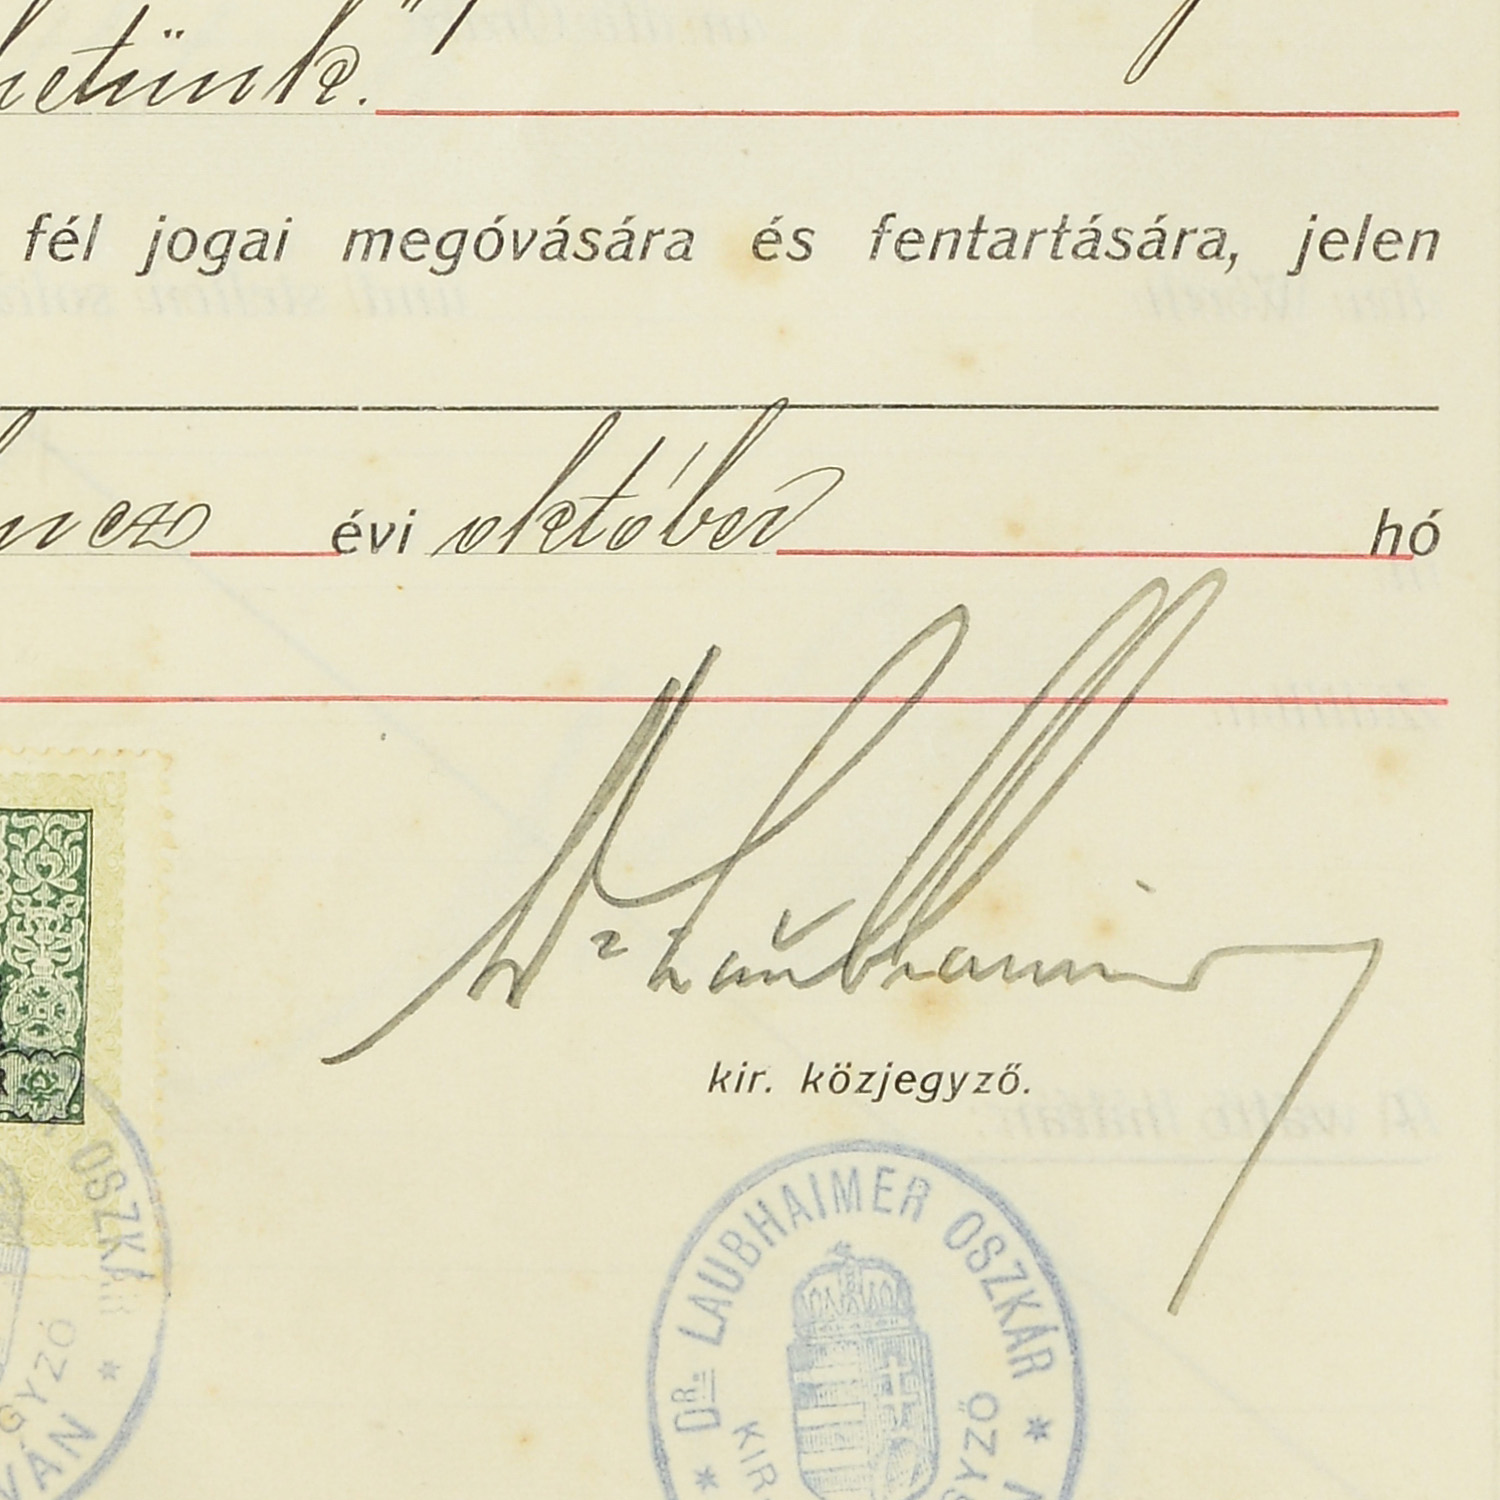 hetünk.
fél jogai megóvására és fentartására, jelen
évi október hó
Dr Laubhaimer
kir. közjegyző.
OSZKÁR *
GYZŐ
VÁN
* DR. LAUBHAIMER OSZKÁR *
KIR. GYZŐ